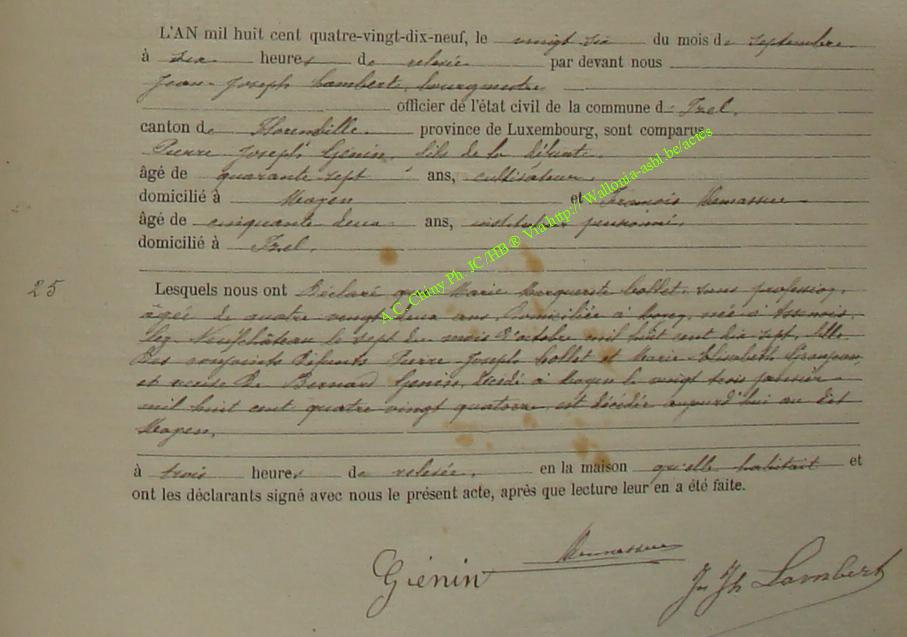 L'AN mil huit cent quatre-vingt-dix-neuf, le vingt six du mois de septembre
à six heures de relevée par devant nous
Jean Joseph Lambert, bourgmestre
officier de l'état civil de la commune d'Izel,
canton de Florenville province de Luxembourg, sont comparus
Pierre Joseph Génin, fils de la défunte,
âgé de quarante sept ans, cultivateur
domicilié à Moyen et François
âgé de cinquante deux ans, instituteur pensionné
domicilié à Izel,
25
Lesquels nous ont déclaré que Marie Marguerite Collet, sans profession,
âgée de quatre vingt deux ans, domiciliée à Moyen, née à Assenois
lez Neufchâteau le sept du mois d'octobre mil huit cent dix sept, fille
des conjoints défunts Pierre Joseph Collet et Marie Elisabeth
et veuve de Bernard Génin, décédé à Moyen le vingt trois janvier
mil huit cent quatre vingt quatorze, est décédée aujourd'hui au dit
Moyen,
à trois heures de relevée, en la maison qu'elle habitait et
ont les déclarants signé avec nous le présent acte, après que lecture leur en a été faite.
Génin
Jn Jh Lambert
A.C. Chiny Ph. JC/HB ® Via http://Wallonia-asbl.be/actes